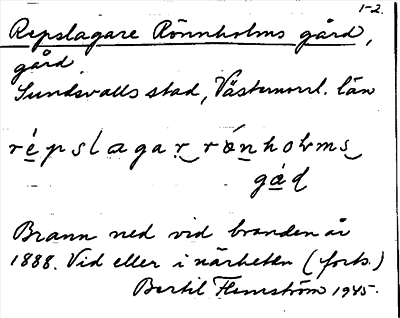 1-2.
Repslagare Rönnholms gård,
gård
Sundsvalls stad, Västernorrl. län
répslagar rónholms
gáḍ
Brann ned vid branden år
1888. Vid eller i närheten (forts.)
Bertil Flemström 1945.